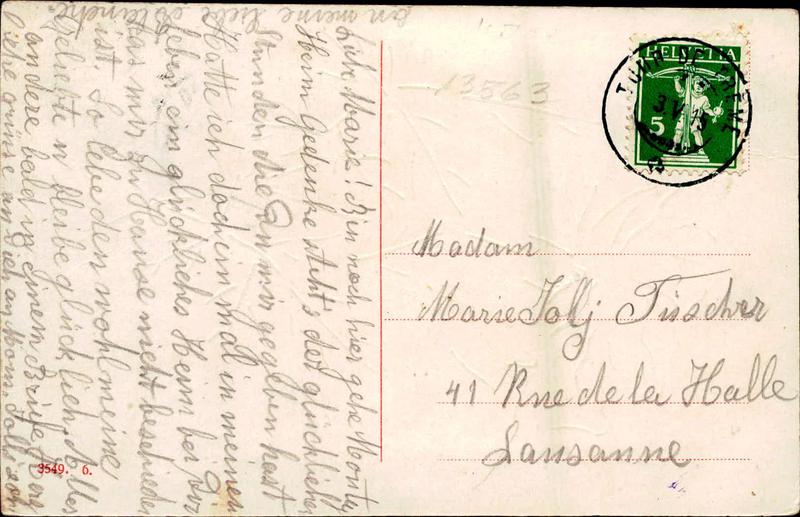 Liebe Marie! Bin noch hier gehe Montag
Heim Gedenke stehts der glücklichen
Stunden die Du mir gegeben hast
Hatte ich doch einmal in meinem
Leben ein glückliches Heim bei Dir
was mir zu Hause nicht beschieden
ist. So lebe den wohl meine
Geliebte u bleibe glücklich. Alles
andere bald in einem Briefe. Herz
liche grüsse an Dich an Mons. Jolj
an meine liebe
HELVETIA
5
3 V 15
13563
Madam
Marie Jolj Tüscher
41 Rue de la Halle
Lausanne
3549. 6.